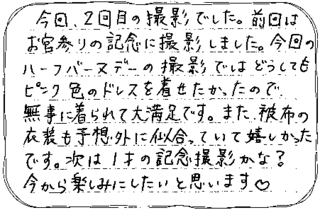 今回、2回目の撮影でした。前回は
お宮参りの記念に撮影しました。今回の
ハーフバースデーの撮影ではどうしても
ピンク色のドレスを着せたかったので
無事に着られて大満足です。また、被布の
衣装も予想外に似合っていて嬉しかった
です。次は1才の記念撮影かな?
今から楽しみにしたいと思います♡